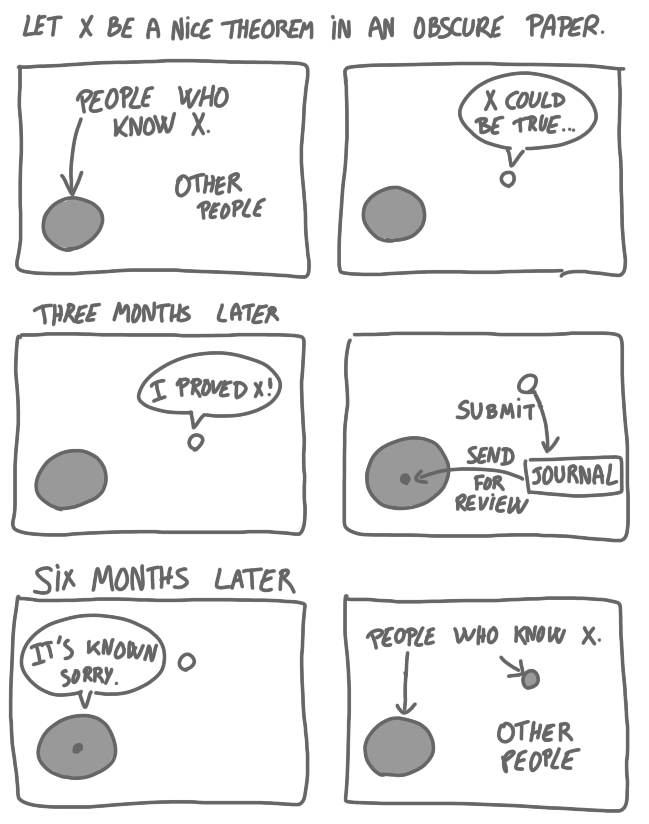 LET X BE A NICE THEOREM IN AN OBSCURE PAPER.
PEOPLE WHO
KNOW X.
OTHER
PEOPLE
X COULD
BE TRUE...
THREE MONTHS LATER
I PROVED X!
SUBMIT
JOURNAL
SEND
FOR
REVIEW
SIX MONTHS LATER
IT'S KNOWN
SORRY.
PEOPLE WHO KNOW X.
OTHER
PEOPLE